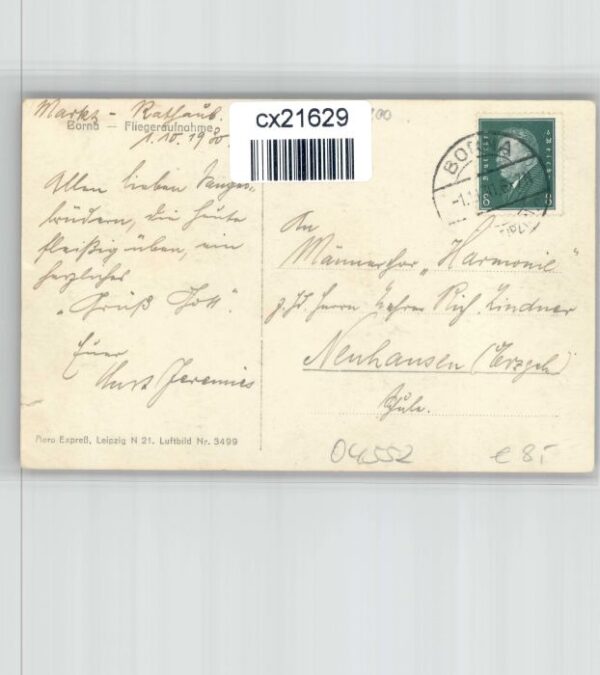 Markt - Rathaus.
Borna — Fliegeraufnahme
1.10.1930.
cx21629
Allen lieben Sanges-
brüdern, die heute
fleißig üben, ein
herzliches
„Grüß Gott".
Euer
Kurt Jeremies
BORNA
8 8
An
Männerchor „Harmonie"
z. Hd. Herrn Lehrer Rich. Lindner
Neuhausen (Erzgeb)
Schule.
Aero Expreß, Leipzig N 21. Luftbild Nr. 3499
04552
€ 8,-